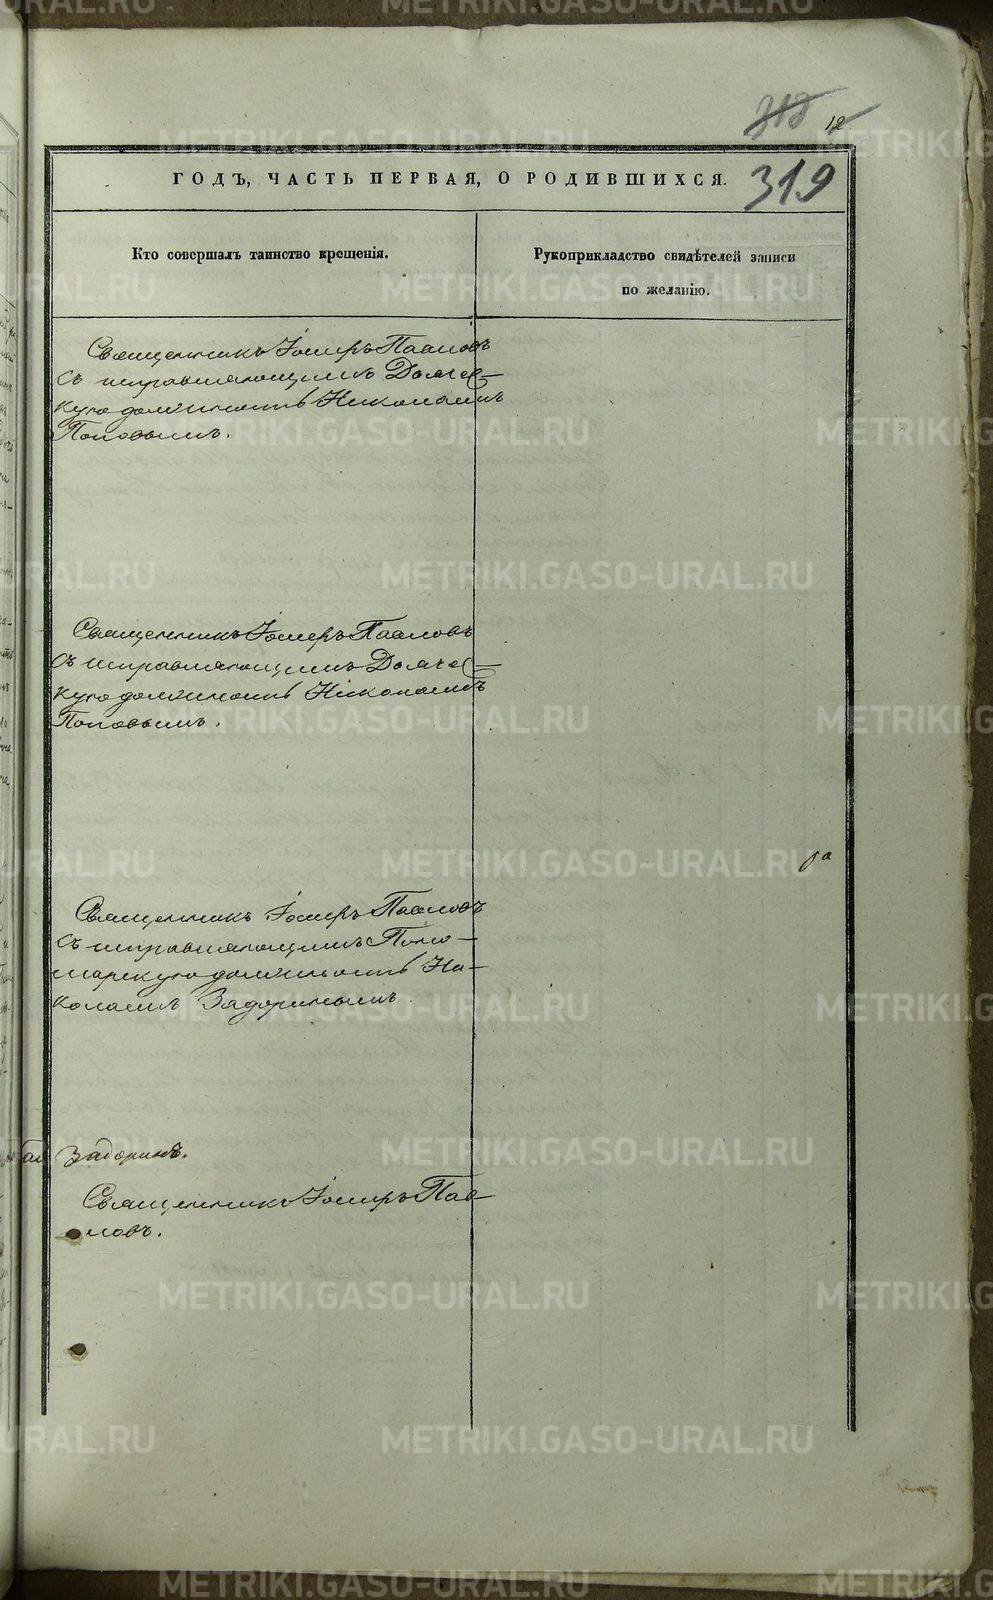 318 12
319
ГОДЪ, ЧАСТЬ ПЕРВАЯ, О РОДИВШИХСЯ.
Кто совершалъ таинство крещенія.
Рукоприкладство свидѣтелей записи
по желанію.
Священникъ Іосифъ Павловъ
съ исправляющимъ Дьячес-
кую должность Николаемъ
Поповымъ.
Священникъ Іосифъ Павловъ
съ исправляющимъ Дьячес-
кую должность Николаемъ
Поповымъ.
Священникъ Іосифъ Павловъ
съ исправляющимъ Поно-
марскую должность Ни-
колаемъ Задоринымъ.
Задоринъ.
Священникъ Іосифъ Пав-
ловъ.
METRIKI.GASO-URAL.RU